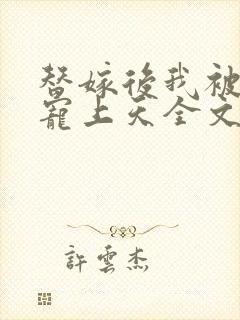 替嫁後我被
寵上天全文
許雲杰